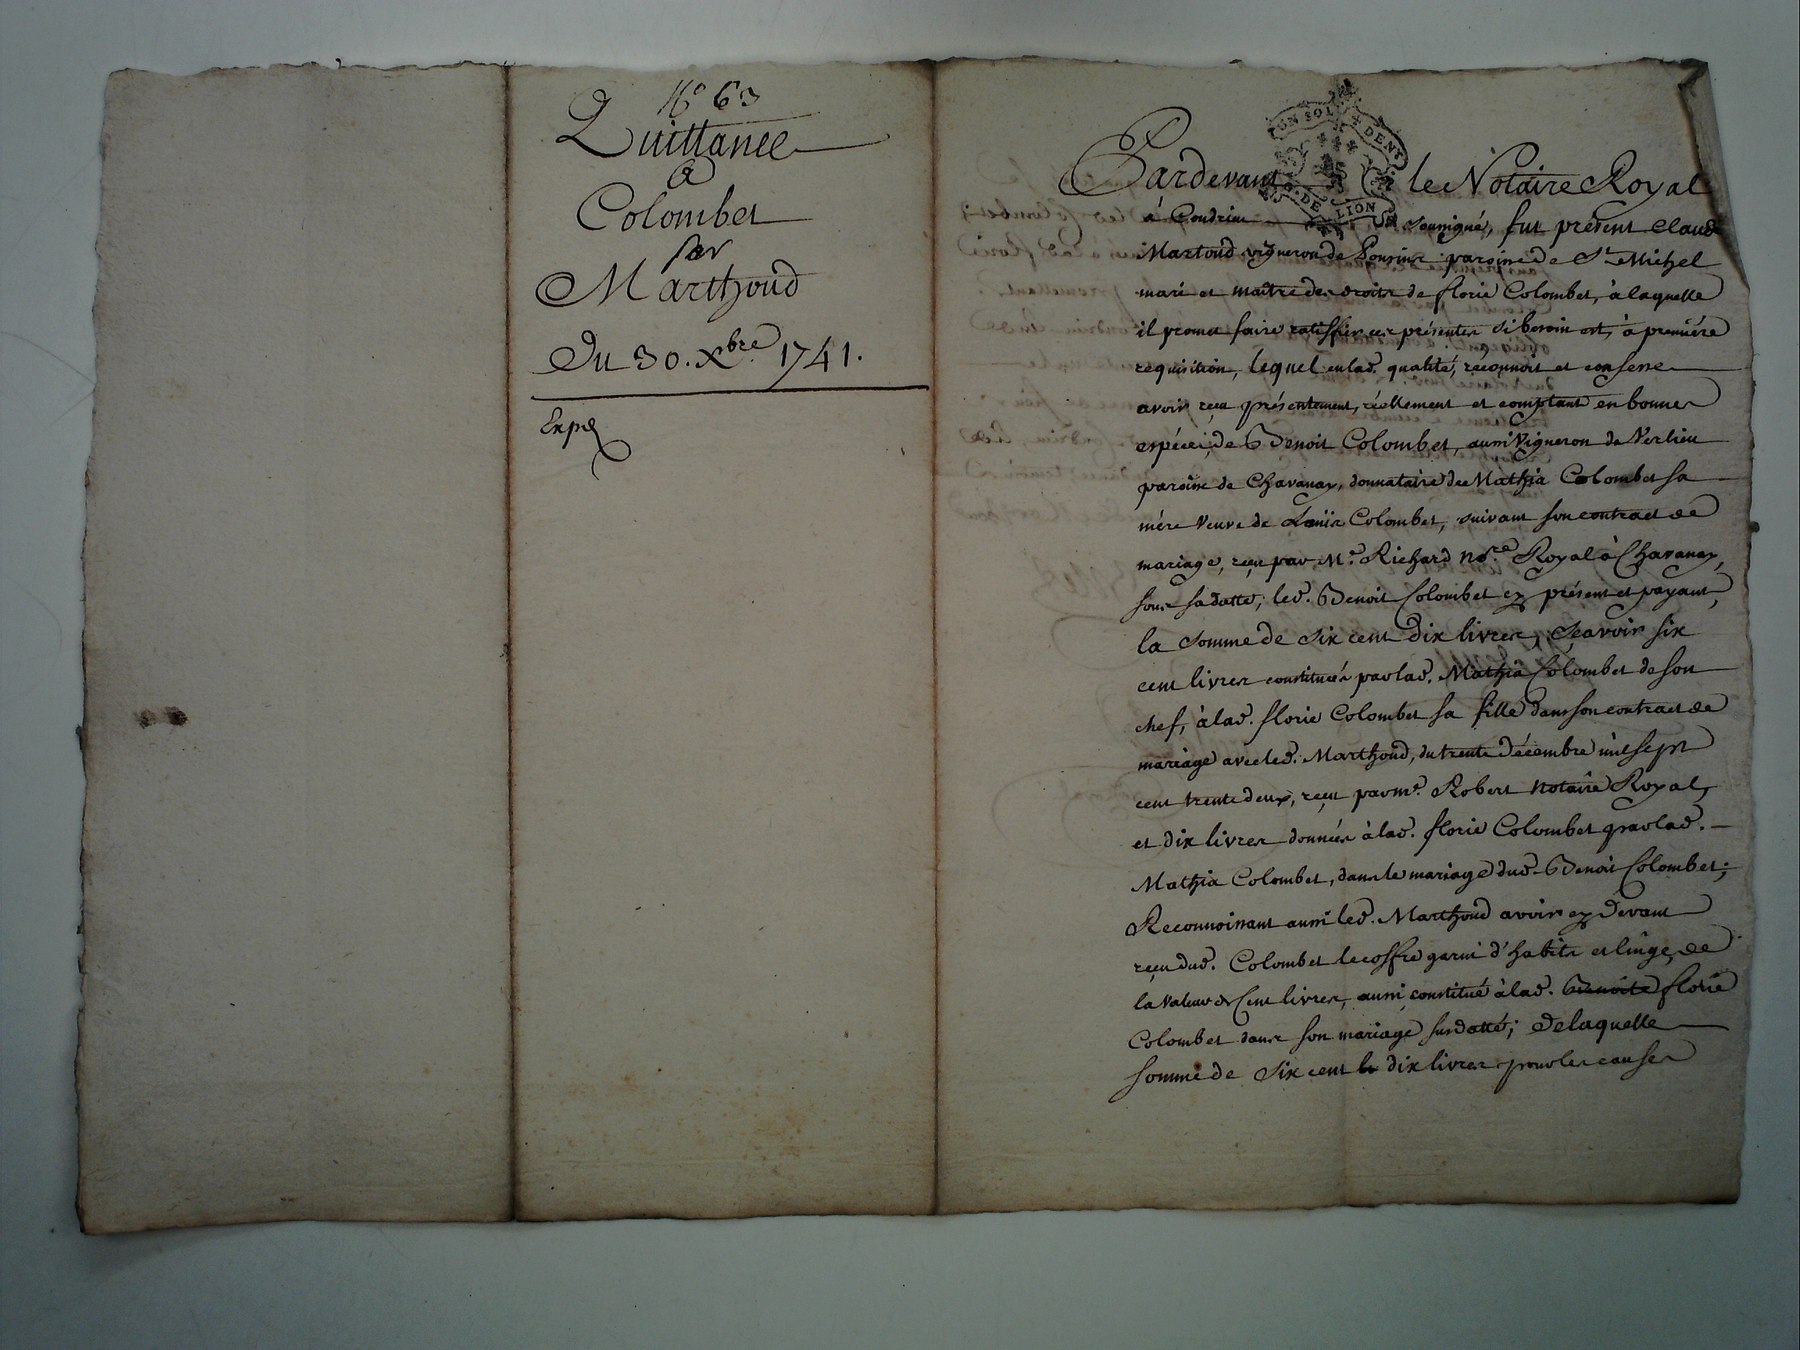 N.o 63
Quittance
A
Colombet
par
Marthoud
Du 30. Xbre 1741.
Expé
UN SOL . . DENY
G. DE LION
Pardevant le Notaire Royal
à Condrieu soussigné, fut présent Claude
Martoud vigneron de paroisse de St. Michel
mari et maître des droits de florie Colombet, à laquelle
il promet faire ratiffier ces présentes si besoin est, à première
requisition, lequel en lad. qualité, réconnoit et confesse
avoir reçu présentement, réellement et comptant en bonnes
espéces, de Benoit Colombet, aussi Vigneron de Verlieu
paroisse de Chavanay, donnataire de Mathia Colombet sa
mére veuve de Loüis Colombet, suivant son contract de
mariage, reçu par Me. Richard Nore. Royal à Chavanay,
sous sa datte; led. Benoit Colombet cy présent et payant,
la somme de six cent dix livres, sçavoir six
cent livres constituées par lad. Mathia Colombet de son
chef, à lad. florie Colombet sa fille dans son contract de
mariage avec led. Marthoud, du trente décembre mil sept
cent trente deux, reçu par me. Robert notaire Royal,
et dix livres données à lad. florie Colombet par lad.
Mathia Colombet, dans le mariage dud. Benoit Colombet;
Reconnoissant aussi led. Marthoud avoir cy devant
reçu dud. Colombet le coffre garni d'habits et linge, de
la valeur de Cent livres, aussi constitué à lad. Benoite florie
Colombet dans son mariage susdatté; de laquelle
somme de six cent dix livres pour les causes